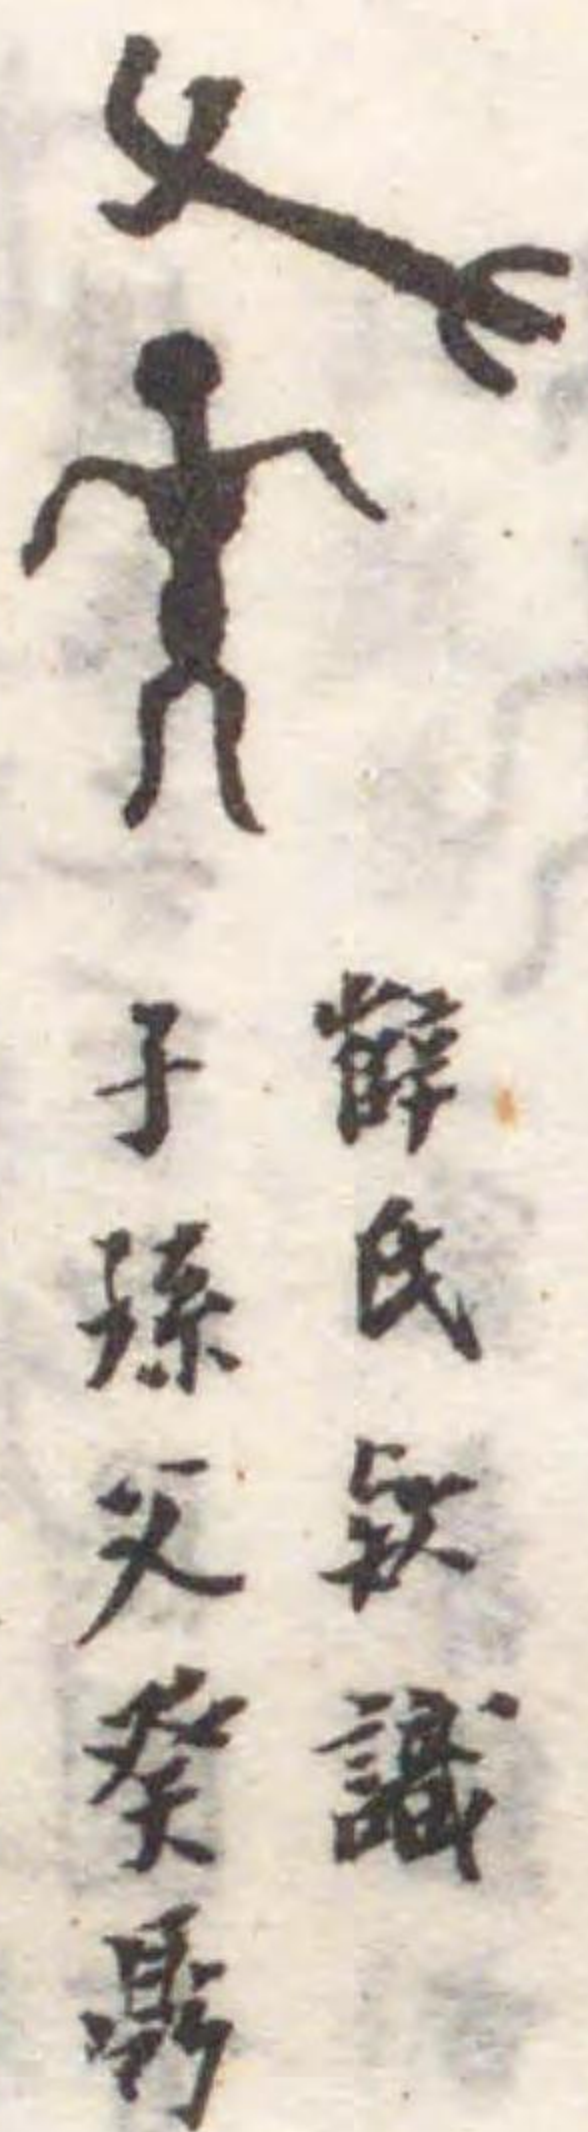 薛氏欵識
子孫父癸鼎